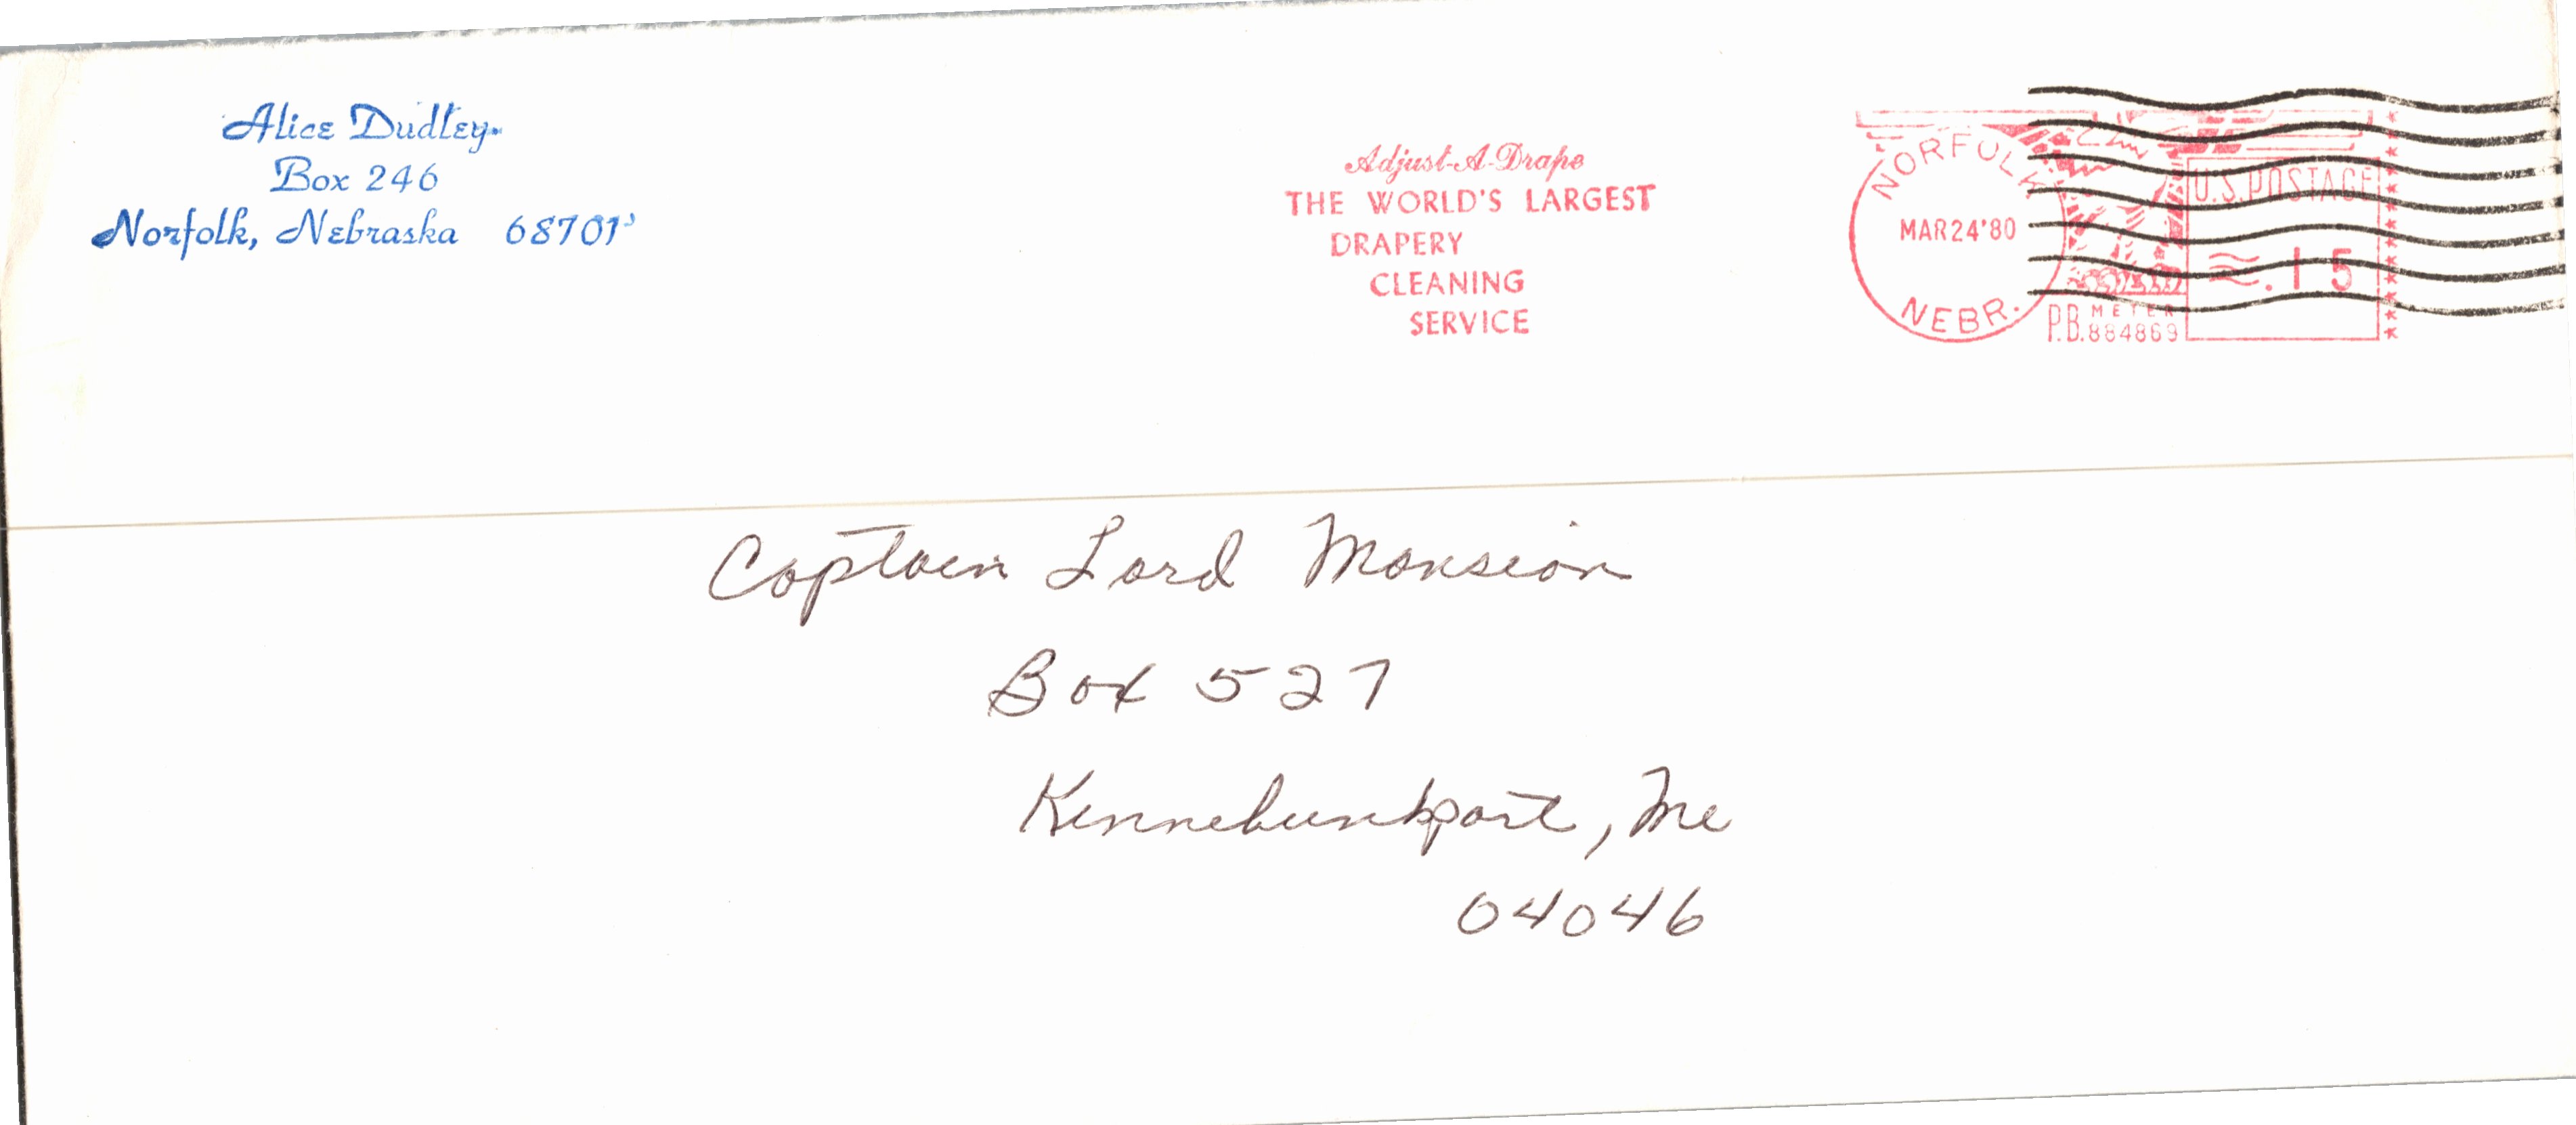 Alice Dudley
Box 246
Norfolk, Nebraska 68701
Adjust-A-Drape
THE WORLD'S LARGEST
DRAPERY
CLEANING
SERVICE
NORFOLK
MAR24'80
NEBR.
U.S.POSTAGE
.15
P.B. METER
884869
Captain Lord Mansion
Box 527
Kennebunkport, Me
04046